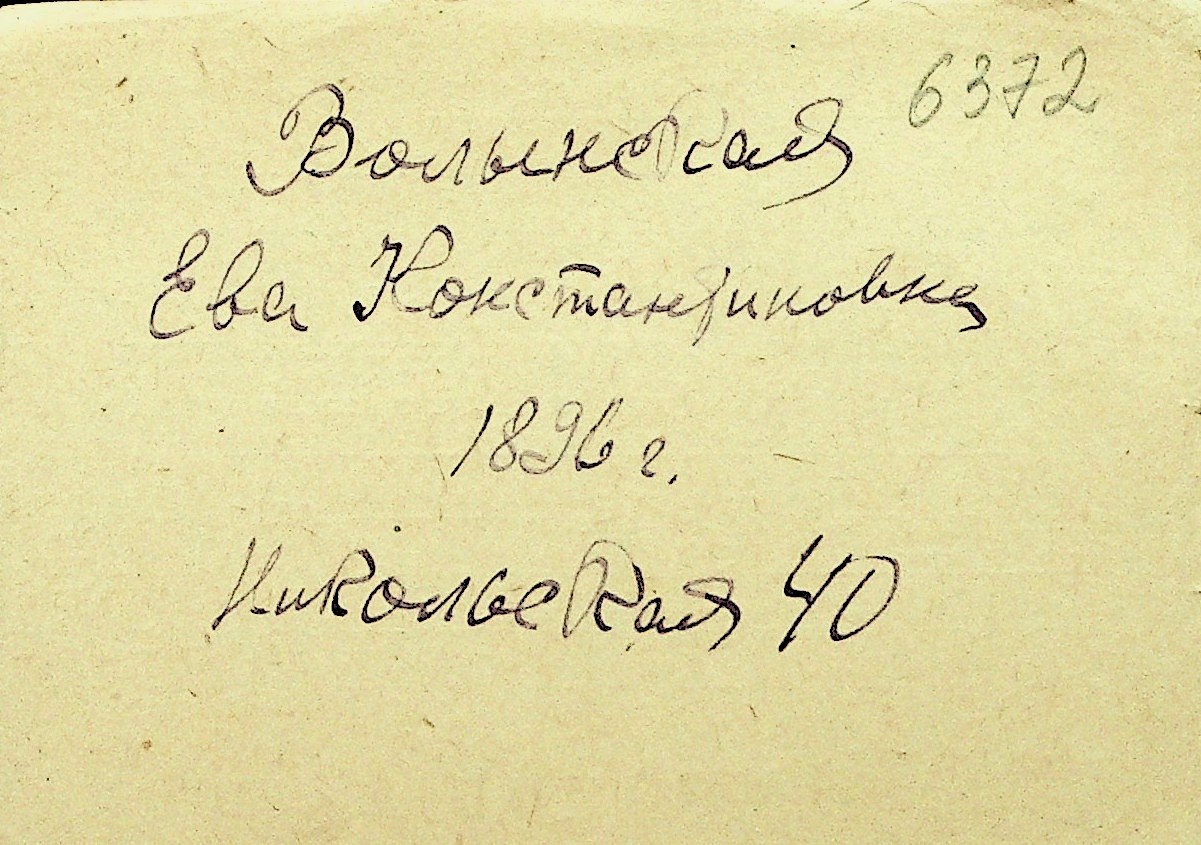 6372
Волынская
Ева Константиновна
1896 г.
Никольская 40